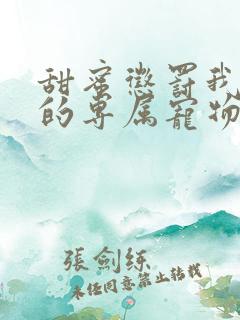 甜蜜懲罰我
的專属寵物
張剑练
未经同意禁止转载